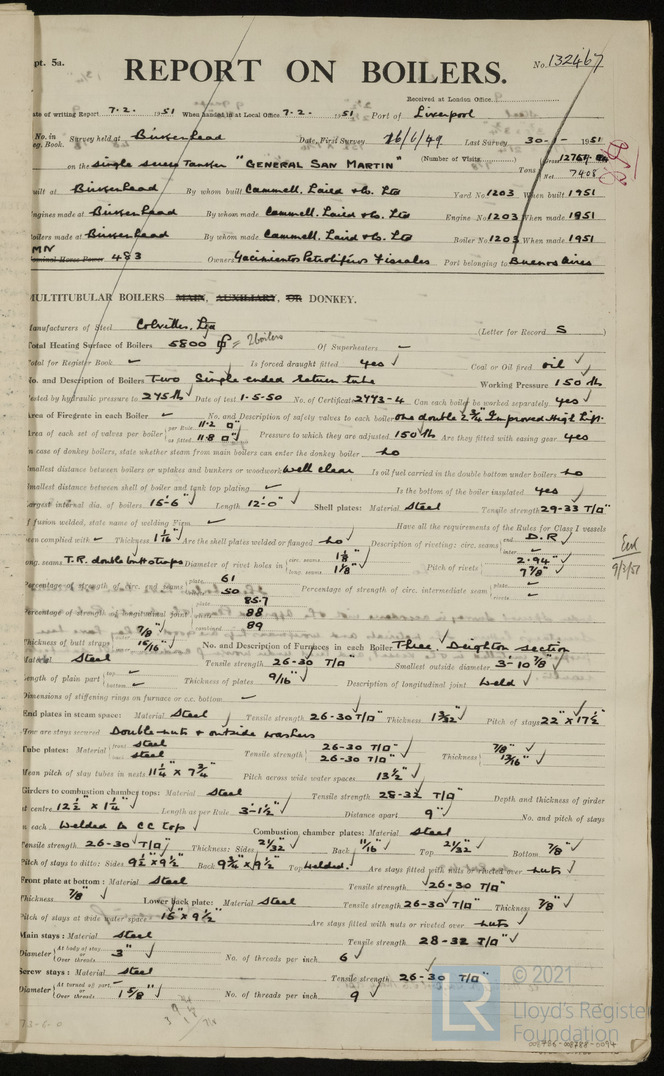 pt. 5a.
REPORT ON BOILERS.
No. 132467
Received at London Office
ate of writing Report 7.2. 1951 When handed in at Local Office 7.2. 1951 Port of Liverpool
No. in Survey held at Birkenhead Date, First Survey 16/6/49 Last Survey 30- - 1951
eg. Book. (Number of Visits )
on the Single screw Tanker "GENERAL SAN MARTIN" Tons Gross
Net 7408
uilt at Birkenhead By whom built Cammell, Laird & Co. Ltd Yard No. 1203 When built 1951
ngines made at Birkenhead By whom made Cammell, Laird & Co. Ltd Engine No. 1203 When made 1951
oilers made at Birkenhead By whom made Cammell, Laird & Co. Ltd Boiler No. 1203 When made 1951
MN
ominal Horse Power 483 Owners Yacimientos Petroliferos Fiscales Port belonging to Buenos Aires
MULTITUBULAR BOILERS MAIN, AUXILIARY, OR DONKEY.
anufacturers of Steel Colvilles, Ltd (Letter for Record S )
otal Heating Surface of Boilers 5800 = 2 boilers Of Superheaters
otal for Register Book. Is forced draught fitted yes Coal or Oil fired oil
No. and Description of Boilers Two Single ended return tube Working Pressure 150 lb
ested by hydraulic pressure to 275 lb Date of test 1-5-50 No. of Certificate 2993-4 Can each boiler be worked separately. yes
Area of Firegrate in each Boiler No. and Description of safety valves to each boiler one double 2 3/4" Improved High Lift.
Area of each set of valves per boiler per Rule 11.2 □" as fitted 11.8 □" Pressure to which they are adjusted 150 lb Are they fitted with easing gear yes
n case of donkey boilers, state whether steam from main boilers can enter the donkey boiler no
mallest distance between boilers or uptakes and bunkers or woodwork well clear Is oil fuel carried in the double bottom under boilers no
mallest distance between shell of boiler and tank top plating Is the bottom of the boiler insulated yes
argest internal dia. of boilers 15-6" Length 12-0" Shell plates: Material Steel Tensile strength 29-33 T/□"
f fusion welded, state name of welding Firm Have all the requirements of the Rules for Class I vessels
een complied with Thickness 1 1/16" Are the shell plates welded or flanged no Description of riveting: circ. seams end D.R inter.
ong. seams T.R. double butt straps Diameter of rivet holes in circ. seams 1 1/8" long. seams 1 1/8" Pitch of rivets 2.94" 7 7/8"
 Percentage of strength of circ. end seams plate 61 rivets 50 Percentage of strength of circ. intermediate seam plate rivets
Percentage of strength of longitudinal joint plate 85.7 rivets 88 combined 89
Thickness of butt straps 7/8" 15/16" No. and Description of Furnaces in each Boiler Three, Deighton section
Material Steel Tensile strength 26-30 T/□" Smallest outside diameter 3-10 7/8"
ength of plain part top bottom Thickness of plates 9/16" Description of longitudinal joint weld
Dimensions of stiffening rings on furnace or c.c. bottom
End plates in steam space: Material Steel Tensile strength 26-30 T/□" Thickness 1 3/32" Pitch of stays 22" x 17 1/2"
How are stays secured Double nuts & outside washers
Tube plates: Material front steel back steel Tensile strength 26-30 T/□" 26-30 T/□" Thickness 7/8" 13/16"
Mean pitch of stay tubes in nests 11 1/4" x 7 3/4" Pitch across wide water spaces 13 1/2"
Girders to combustion chamber tops: Material Steel Tensile strength 28-32 T/□" Depth and thickness of girder
t centre 12 1/2" x 1 1/4" Length as per Rule 3-1 1/2" Distance apart 9" No. and pitch of stays
n each Welded to CC top Combustion chamber plates: Material Steel
ensile strength 26-30 T/□" Thickness: Sides 21/32" Back 11/16" Top 21/32" Bottom 7/8"
Pitch of stays to ditto: Sides 9 1/2" x 9 1/2" Back 9 3/4" x 9 1/2" Top welded. Are stays fitted with nuts or riveted over nuts
Front plate at bottom: Material Steel Tensile strength 26-30 T/□"
Thickness 7/8" Lower back plate: Material Steel Tensile strength 26-30 T/□" Thickness 7/8"
Pitch of stays at wide water space 15" x 9 1/2" Are stays fitted with nuts or riveted over nuts
Main stays: Material Steel Tensile strength 28-32 T/□"
Diameter At body of stay, or Over threads 3" No. of threads per inch 6
Screw stays: Material Steel Tensile strength 26-30 T/□"
Diameter At turned off part, or Over threads 1 5/8" No. of threads per inch 9
9/3/51
© 2021
Lloyd's Register
Foundation
008786-008788-0094